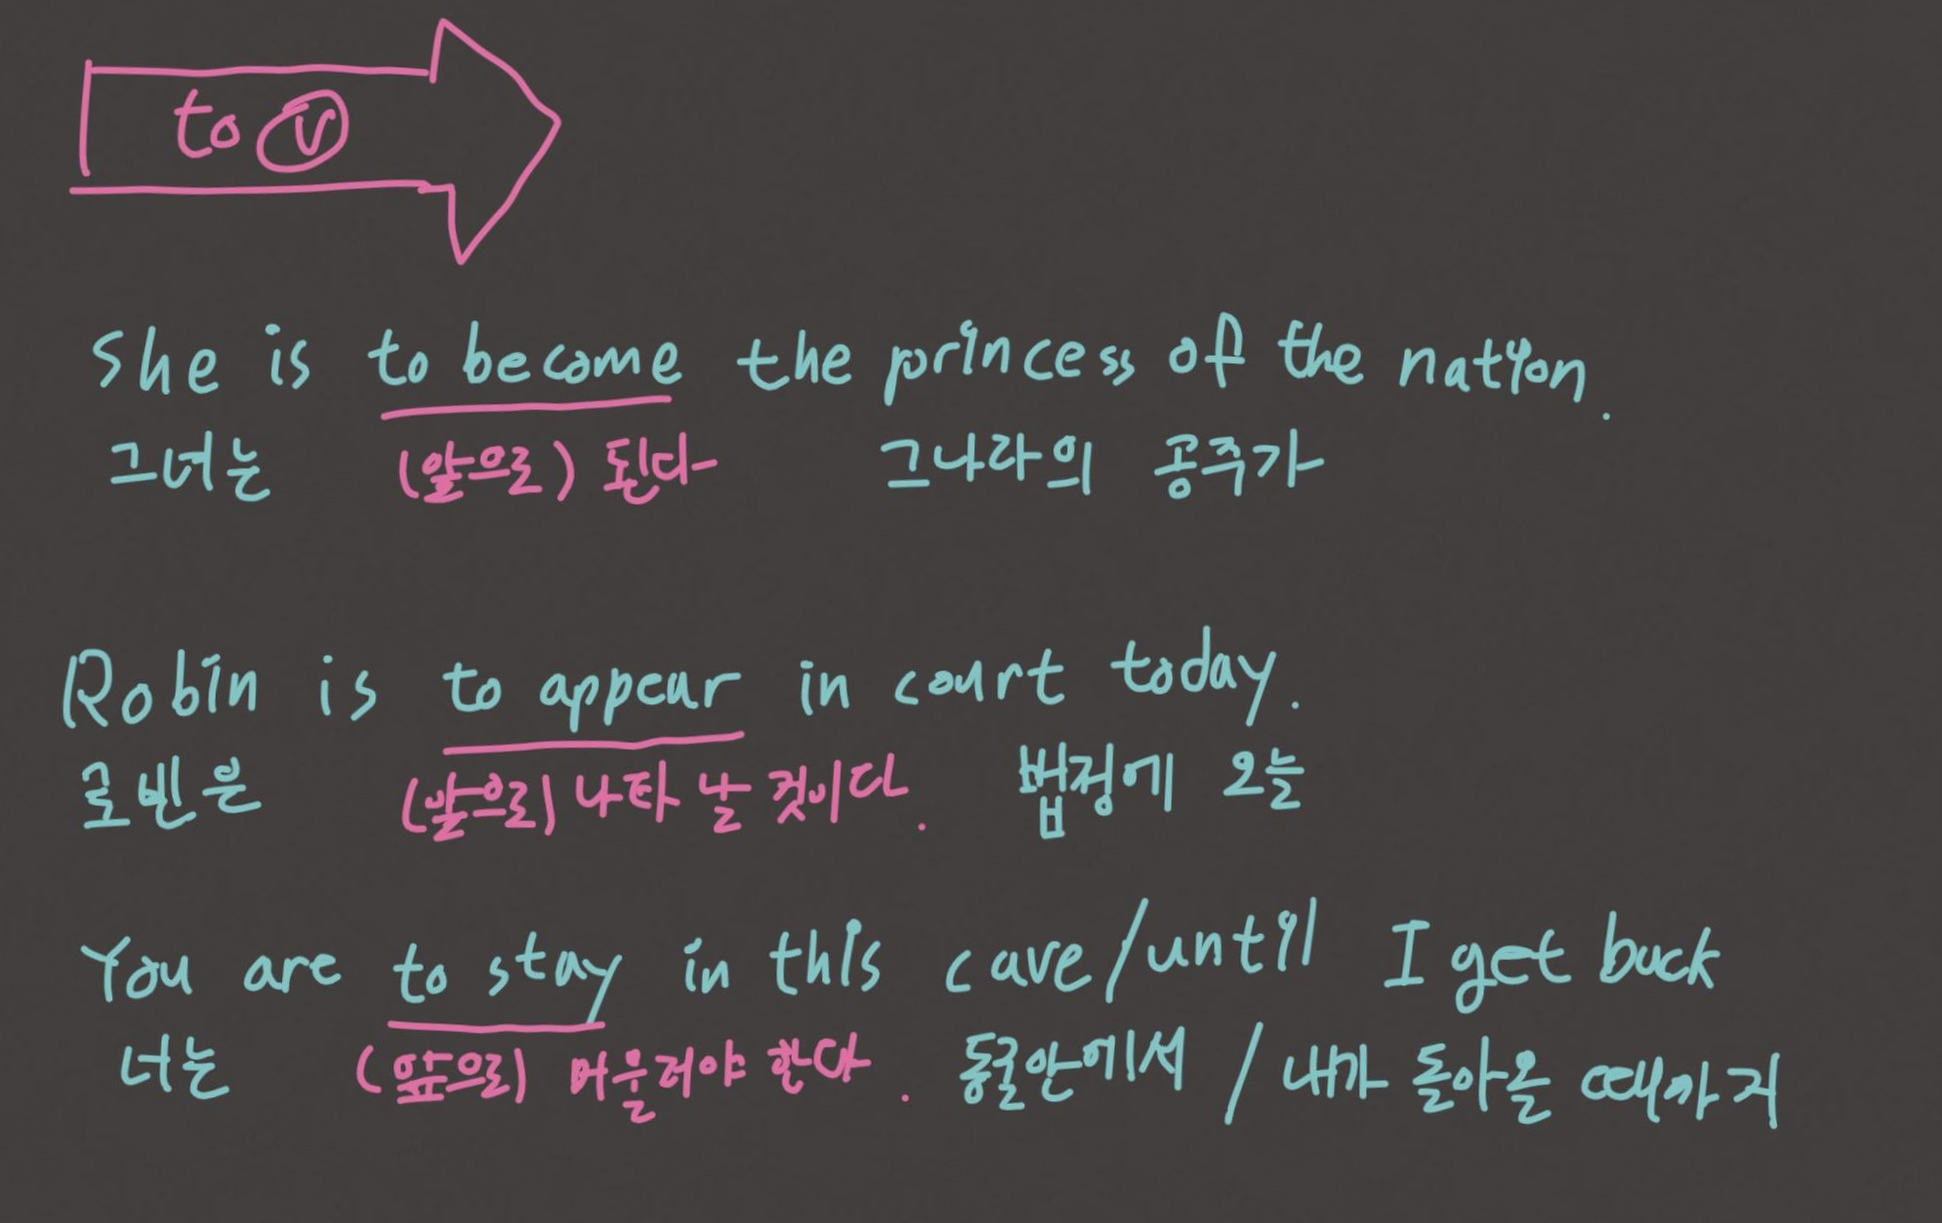 to ⓥ
She is to become the princess of the nation.
그녀는 (앞으로) 된다 그나라의 공주가
Robin is to appear in court today.
로빈은 (앞으로) 나타날 것이다. 법정에 오늘
You are to stay in this cave/until I get back
너는 (앞으로) 머물러야 한다. 동굴안에서 / 내가 돌아올 때까지